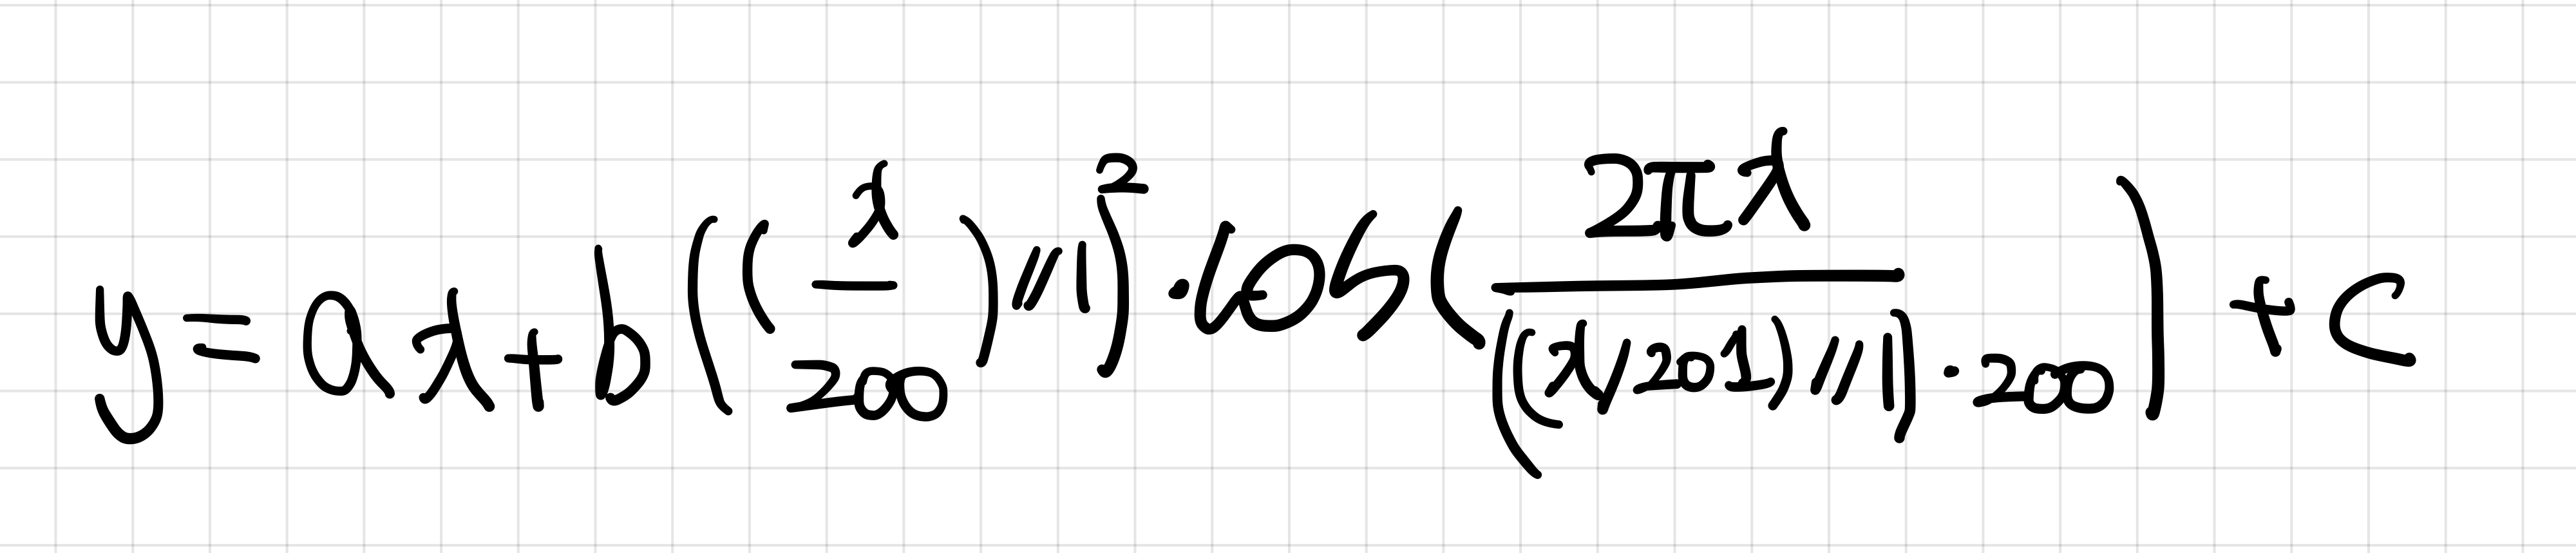 y = ax + b((x/200)//1)² · cos(2πx/(((x/201)//1) · 200)) + c